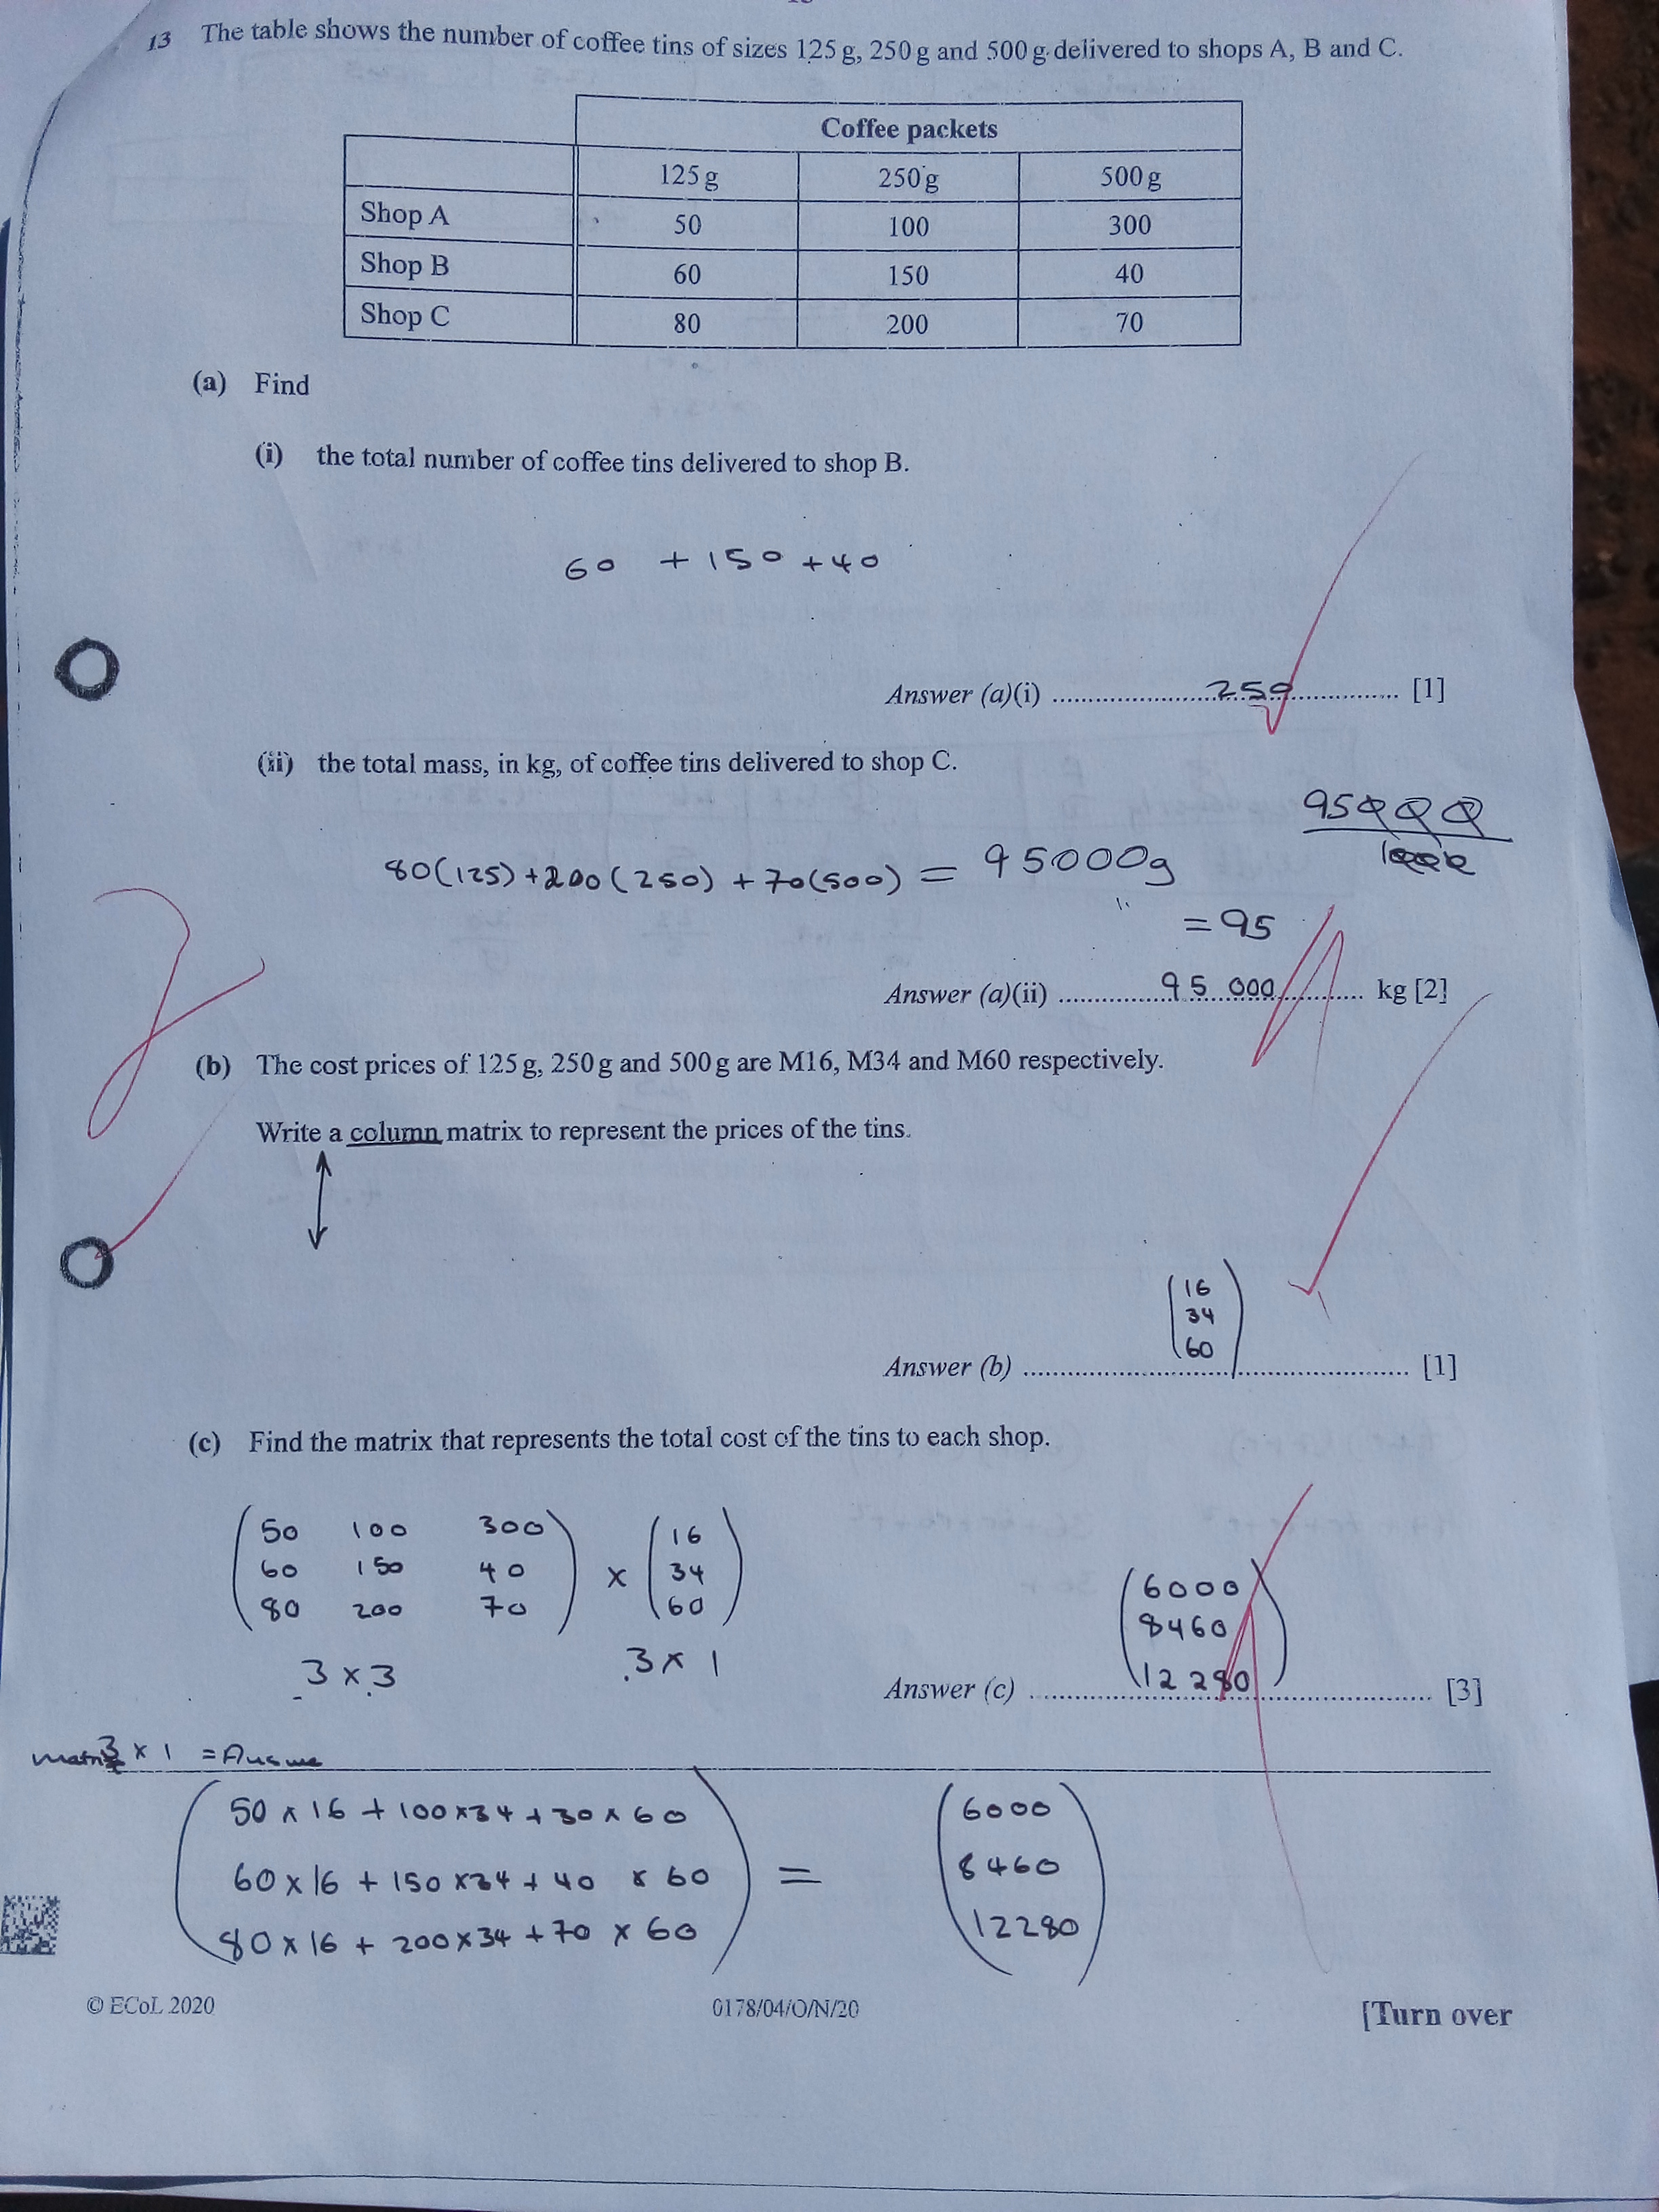 13 The table shows the number of coffee tins of sizes 125 g, 250 g and 500 g delivered to shops A, B and C.
Coffee packets
125 g 250 g 500 g
Shop A 50 100 300
Shop B 60 150 40
Shop C 80 200 70
(a) Find
(i) the total number of coffee tins delivered to shop B.
60 + 150 + 40
Answer (a)(i) 250 [1]
(ii) the total mass, in kg, of coffee tins delivered to shop C.
95000
1000
80(125) + 200(250) + 70(500) = 95000g
= 95
Answer (a)(ii) 95 000 kg [2]
(b) The cost prices of 125 g, 250 g and 500 g are M16, M34 and M60 respectively.
Write a column matrix to represent the prices of the tins.
16
34
60
Answer (b) [1]
(c) Find the matrix that represents the total cost of the tins to each shop.
50 100 300 16
60 150 40 × 34
80 200 70 60
6000
8460
12 280
3 × 3 3 × 1
Answer (c) [3]
3 × 1 =
50 × 16 + 100 × 34 + 30 × 60 6000
60 × 16 + 150 × 34 + 40 × 60 = 8460
80 × 16 + 200 × 34 + 70 × 60 12280
© ECoL 2020 0178/04/O/N/20 [Turn over